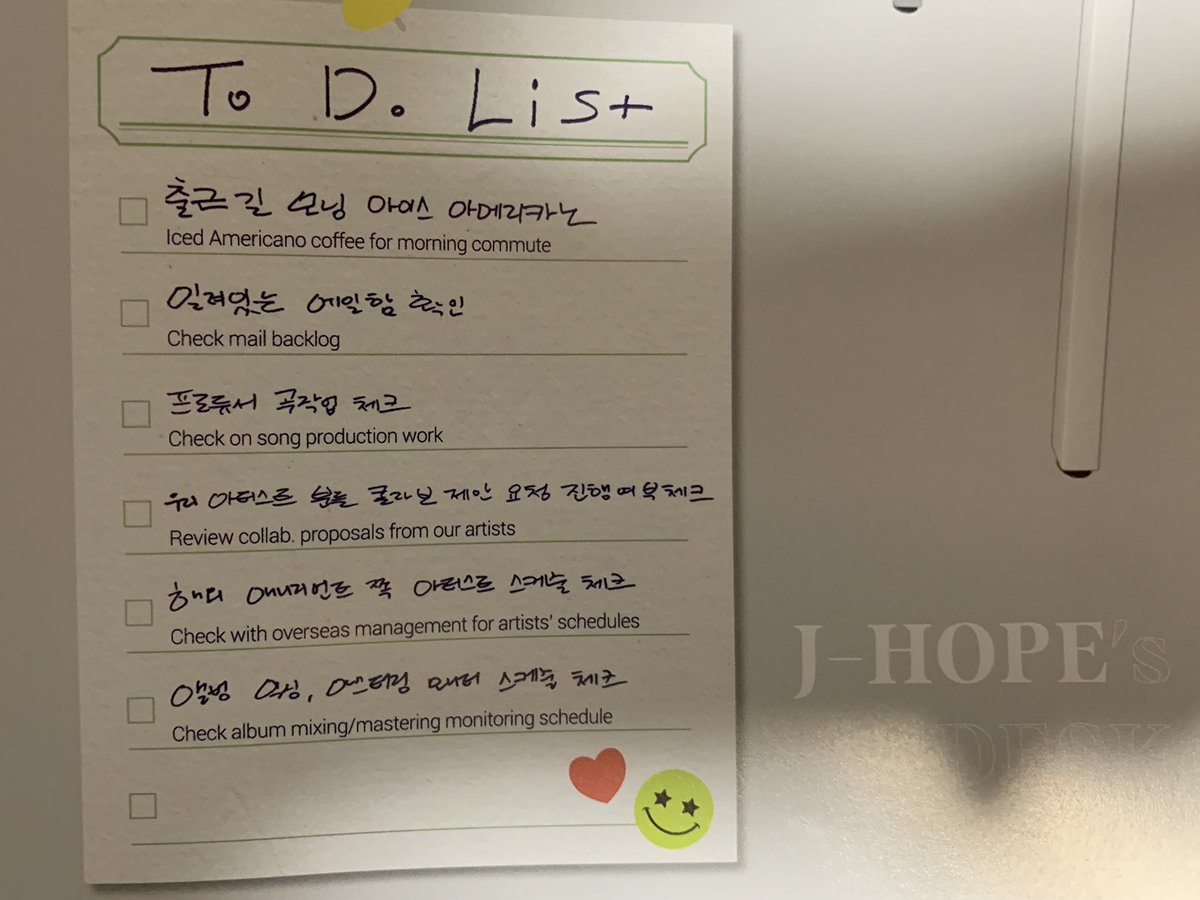 To D. List
출근길 모닝 아이스 아메리카노
Iced Americano coffee for morning commute
밀려있는 메일함 확인
Check mail backlog
프로듀서 곡작업 체크
Check on song production work
우리 아티스트 분들 콜라보 제안 요청 진행여부체크
Review collab. proposals from our artists
해외 매니지먼트 쪽 아티스트 스케줄 체크
Check with overseas management for artists' schedules
앨범 믹싱, 마스터링 모니터 스케줄 체크
Check album mixing/mastering monitoring schedule
J-HOPE's
DESK